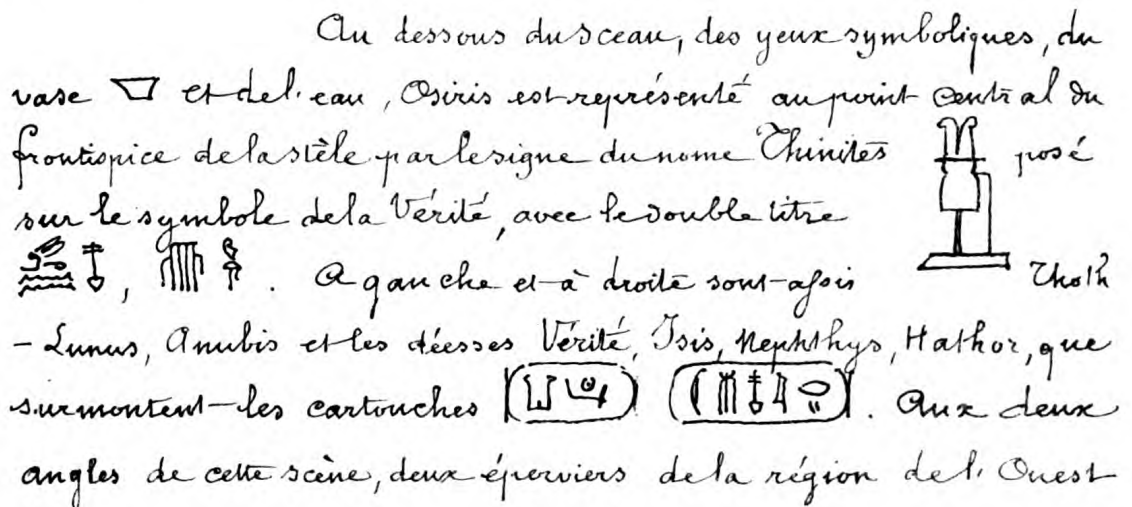 Au dessous du sceau, des yeux symboliques, du
vase et de l'eau, Osiris est représenté au point central du
frontispice de la stèle par le signe du nome Thinites posé
sur le symbole de la Vérité, avec le double titre
, . A gauche et à droite sont assis Thoth
- Lunus, Anubis et les déesses Vérité, Isis, Nephthys, Hathor, que
surmontent les cartouches . Aux deux
angles de cette scène, deux éperviers de la région de l'Ouest